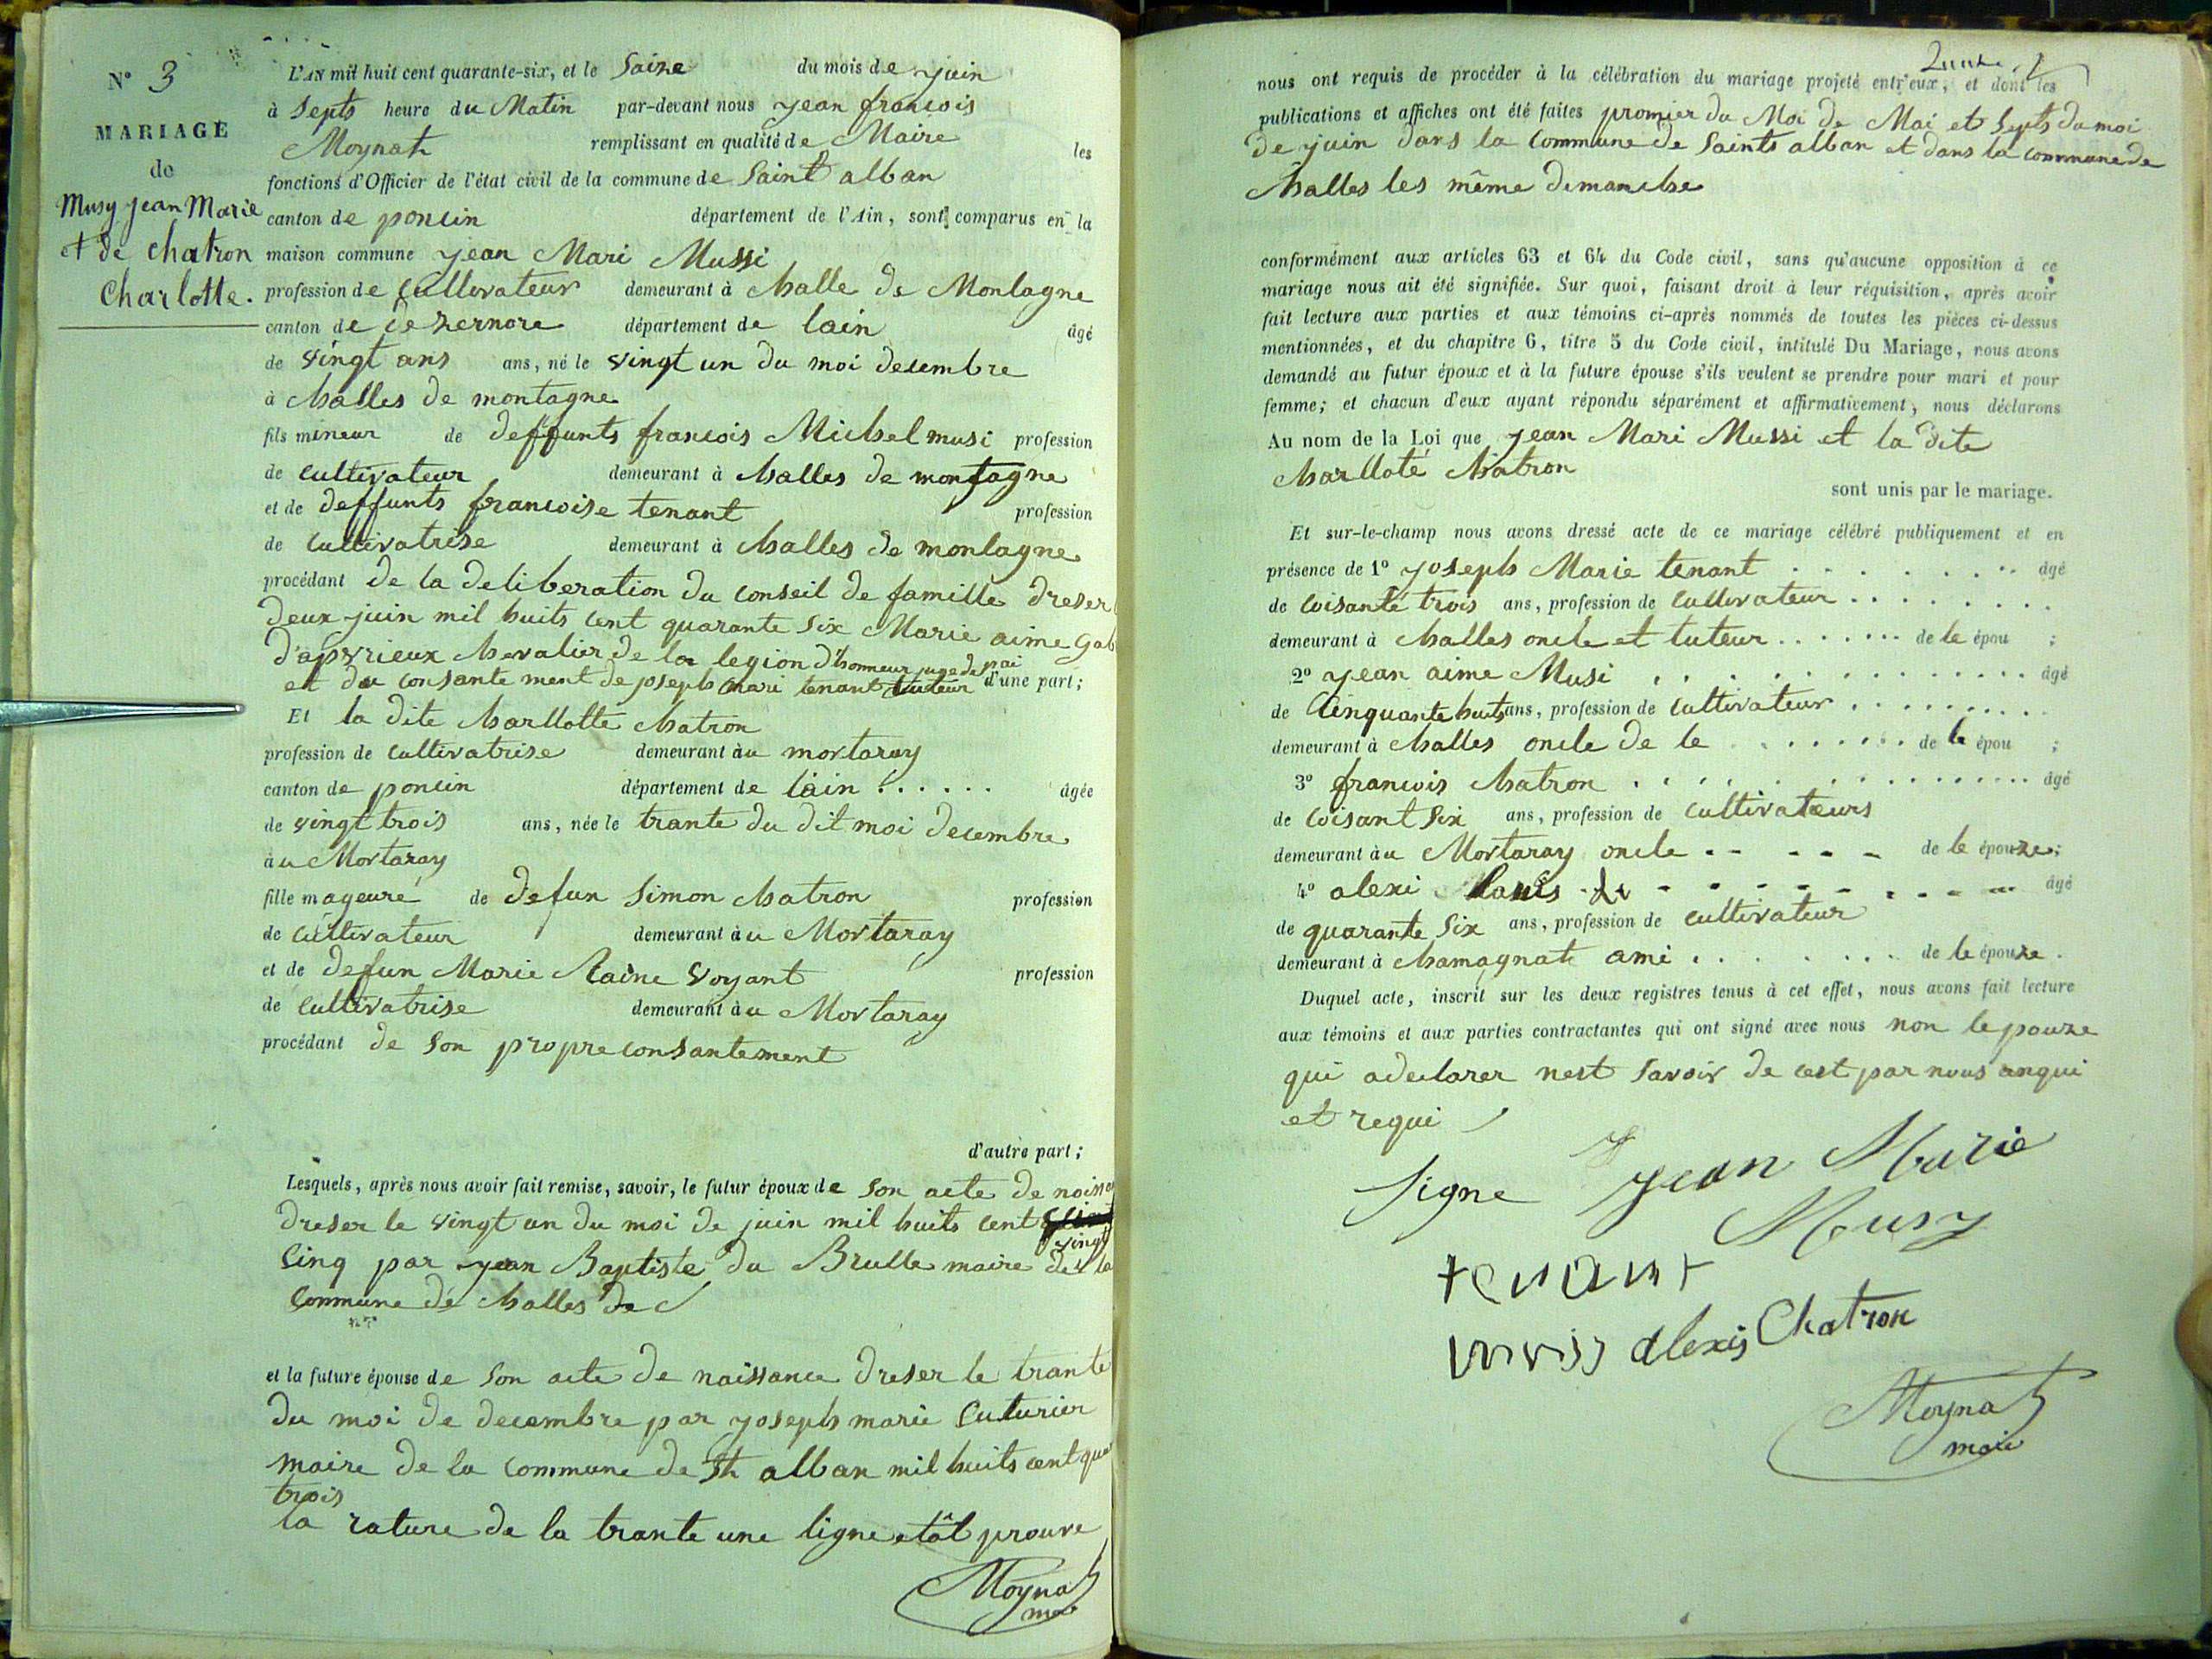 N° 3
MARIAGE
de
Musy jean Marie
et de chatron
Charlotte.
L'AN mil huit cent quarante-six, et le Saize du mois de juin
à Septs heure du Matin par-devant nous jean francois
Moynat remplissant en qualité de Maire les
fonctions d'Officier de l'état civil de la commune de Saint alban
canton de poncin département de l'Ain, sont comparus en la
maison commune jean Mari Mussi
profession de Cultivateur demeurant à challe de Montagne
canton de de zernore département de lain âgé
de vingt ans ans, né le vingt un du moi decembre
à challes de montagne
fils mineur de deffunts francois Michel musi profession
de cultivateur demeurant à challes de montagne
et de deffunts francoise tenant profession
de Cultivatrise demeurant à challes de montagne
procédant de la deliberation du conseil de famille dreser
deux juin mil huits cent quarante six Marie aime Gab
d'apvrieux chevalier de la legion d'honneur juge de pai
et du consante ment de joseph mari tenant tuteur d'une part;
Et la dite charllotte chatron
profession de cultivatrise demeurant àu mortaray
canton de poncin département de làin ...... âgée
de vingt trois ans, née le trante du dit moi decembre
àu Mortaray
fille mageure de defun Simon chatron profession
de cultivateur demeurant àu Mortaray
et de defun Marie Raine Voyant profession
de cultivatrise demeurant àu Mortaray
procédant de Son propre consantement
d'autre part;
Lesquels, après nous avoir fait remise, savoir, le futur époux de Son acte de noiss
dreser le vingt un du moi de juin mil huits cent
vingt
Cinq par jean Baptiste du Brulle maire de la
Commune de challes de
et la future épouse de Son acte de naissance dreser le trante
du moi de decembre par joseph marie Cuturier
maire de la commune de St alban mil huits cent qua
trois
la rature de la trante une ligne etât prouve
Moynat
mair
nous ont requis de procéder à la célébration du mariage projeté entr'eux, et dont les
publications et affiches ont été faites promier du Moi de Mai et Septs du moi
de juin dans la commune de Saints alban et dans la commune de
challes les même dimanche
conformément aux articles 63 et 64 du Code civil, sans qu'aucune opposition à ce
mariage nous ait été signifiée. Sur quoi, faisant droit à leur réquisition, après avoir
fait lecture aux parties et aux témoins ci-après nommés de toutes les pièces ci-dessus
mentionnées, et du chapitre 6, titre 5 du Code civil, intitulé Du Mariage, nous avons
demandé au futur époux et à la future épouse s'ils veulent se prendre pour mari et pour
femme; et chacun d'eux ayant répondu séparément et affirmativement, nous déclarons
Au nom de la Loi que jean Mari Mussi et la dite
charlloté chatron
sont unis par le mariage.
Et sur-le-champ nous avons dressé acte de ce mariage célébré publiquement et en
présence de 1° joseph Marie tenant âgé
de Coisante trois ans, profession de Cultivateur
demeurant à challes oncle et tuteur de le épou ;
2° jean aime Musi âgé
de Cinquante huits ans, profession de Cultivateur
demeurant à challes oncle de le de le épou ;
3° francois chatron âgé
de Coisant Six ans, profession de cultivateurs
demeurant àu Mortaray oncle de le épouze;
4° alexi âgé
de quarante Six ans, profession de cultivateur
demeurant à chamagnat ami de le épouze.
Duquel acte, inscrit sur les deux registres tenus à cet effet, nous avons fait lecture
aux témoins et aux parties contractantes qui ont signé avec nous non lepouze
qui adeclarer nest Savoir de cest par nous anqui
et requi
Signe jean Marie
Musy
tenant
alexis Chatron
Moynat
maire